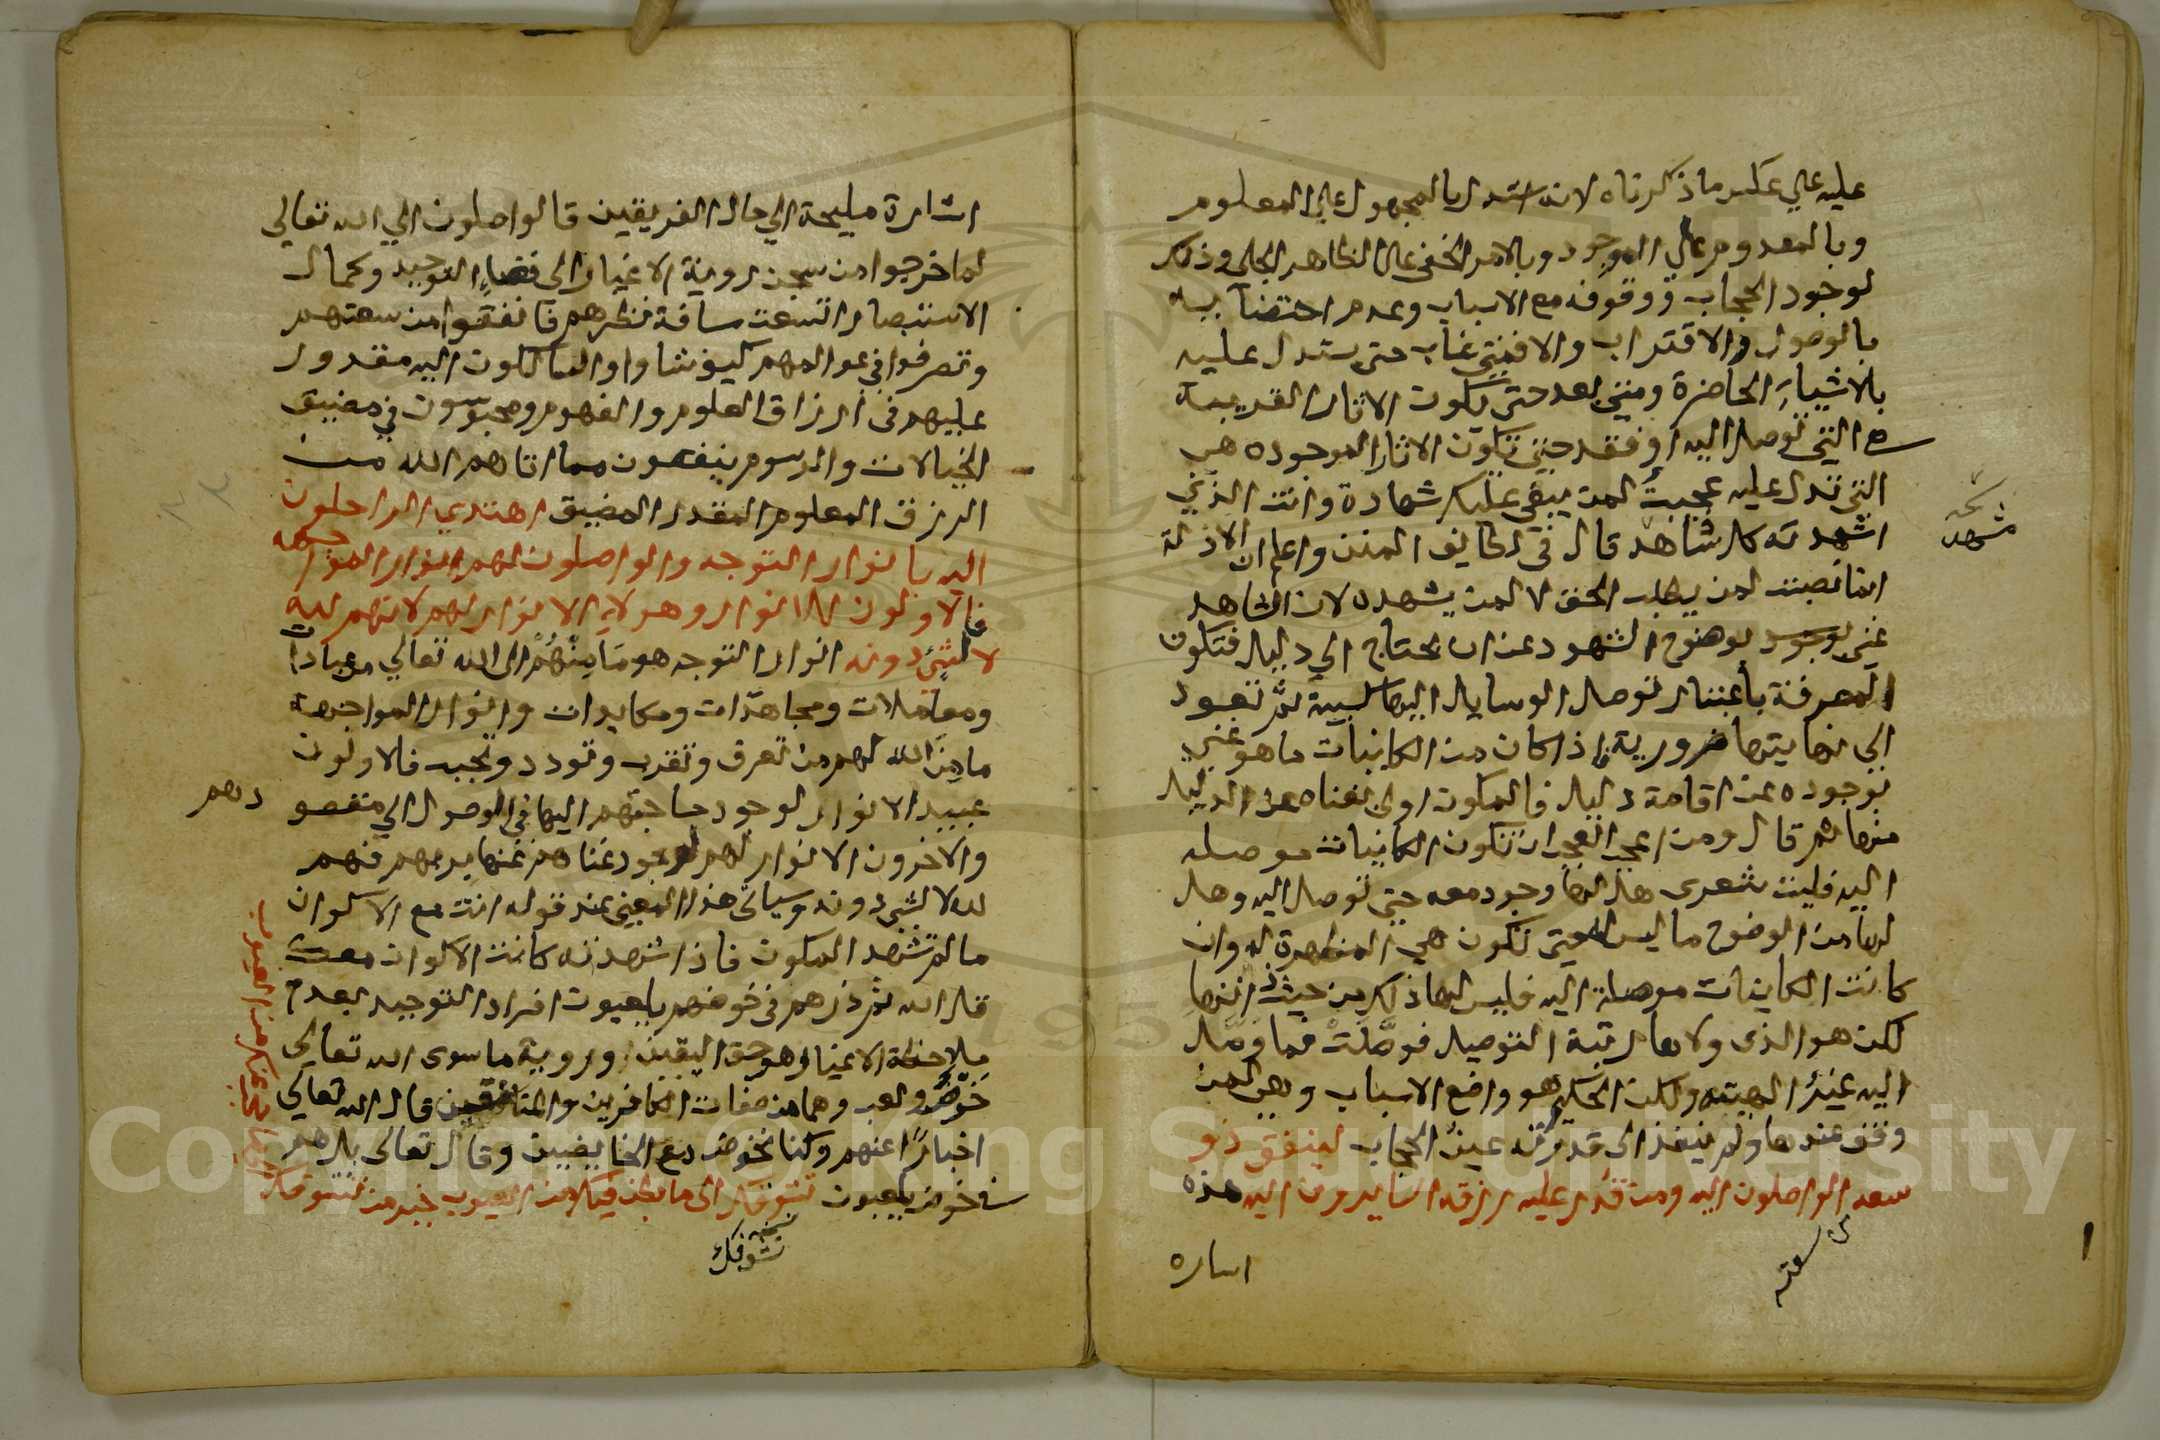 عليه علي عكس ما ذكرناه لانه استدل بالمجهول علي المعلوم
وبالمعدوم علي الموجود وبالامر الخفي علي الظاهر الجلي وذلك
لوجود الحجاب ووقوفه مع الاسباب وعدم احتضائه
بالوصول والاقتراب والا فمتي غاب حتي يستدل عليه
بالاشياء الحاضرة ومتي بعد حتي تكون الاثار القريبة
هي التي توصل اليه او فقد حتي تكون الاثار الموجوده هي
التي تدل عليه عجبت لمن يبغي عليك شهادة وانت الذي
اشهدته كل شاهد قال في لطايف المنن واعلم ان الادلة
انما نصبت لمن يطلب الحق لا لمن يشهده لان الشاهد
غني بوضوح الشهود عن ان يحتاج الي دليل فتكون
المعرفة باعتبار توصل الوسايل اليها كسبية ثم تعود
الي نهايتها ضرورية واذا كان من الكاينات ما هو غني
بوجوده عن اقامة دليل فالمكون اولي بغناه عن الدليل
منها ثم قال ومن اعجب العجب ان تكون الكاينات موصله
اليه فليت شعري هل لها وجود معه حتي توصل اليه وهل
لها من الوضوح ما ليس له حتي تكون هي المظهرة له وان
كانت الكاينات موصلة اليه فليس لها ذلك من حيث انها
لكن هو الذي ولاها رتبة التوصيل فوصلت فما وصل
اليه غير الهيته ولكن الحكيم هو واضع الاسباب وهي لمن
وقف عندها ولم ينفذ الي قدرته عين الحجاب لينفق ذو
سعه الواصلون اليه ومن قدر عليه رزقه السايرون اليه هذه
من سعته
اساره
نسخة
مشهد
اشارة مليحة الي حال الفريقين فالواصلون الي الله تعالي
لما خرجوا من سجن روية الاغيار الي فضاء التوحيد وكمال
الاستبصار اتسعت مسافة نظرهم فانفقوا من سعتهم
وتصرفوا في عوالمهم كيف شاوا والسالكون اليه مقدور
عليهم في ارزاق العلوم والفهوم ومحبوسون في مضيق
الخيالات والرسوم ينفقون مما اتاهم الله من
الرزق المعلوم المقدر المضيق اهتدي الراحلون
اليه بانوار التوجه والواصلون لهم انوار المواجهه
فالاولون للانوار وهولاء الانوار لهم لانهم لله
لا لشيء دونه انوار التوجه هو ما منهم الي الله تعالي من عبادات
ومعاملات ومجاهدات ومكابدات وانوار المواجهة
ما من الله لهم من تعرف وتقرب وتودد وتحبب فالاولون
عبيد الانوار لوجود حاجتهم اليها في الوصول الي مقصو
دهم
والاخرون الانوار لهم لوجود غناهم عنها بربهم فهم
لله لا لشي دونه وسياتي هذا المعني عند قوله انت مع الاكوان
ما لم تشهد المكون فاذا شهدته كانت الاكوان معك
قل الله ثم ذرهم في خوضهم يلعبون افراد التوحيد بعدم
ملاحظة الاغيار هو حق اليقين وروية ما سوي الله تعالي
خوض ولعب وهما من صفات الكافرين والمنافقين قال الله تعالي
اخبارا عنهم وكنا نخوض مع الخايضين وقال تعالي بل هم
في خوض يلعبون تشوفك الي ما بطن فيك من العيوب خير من تشوفك
نسخة
تشوفك